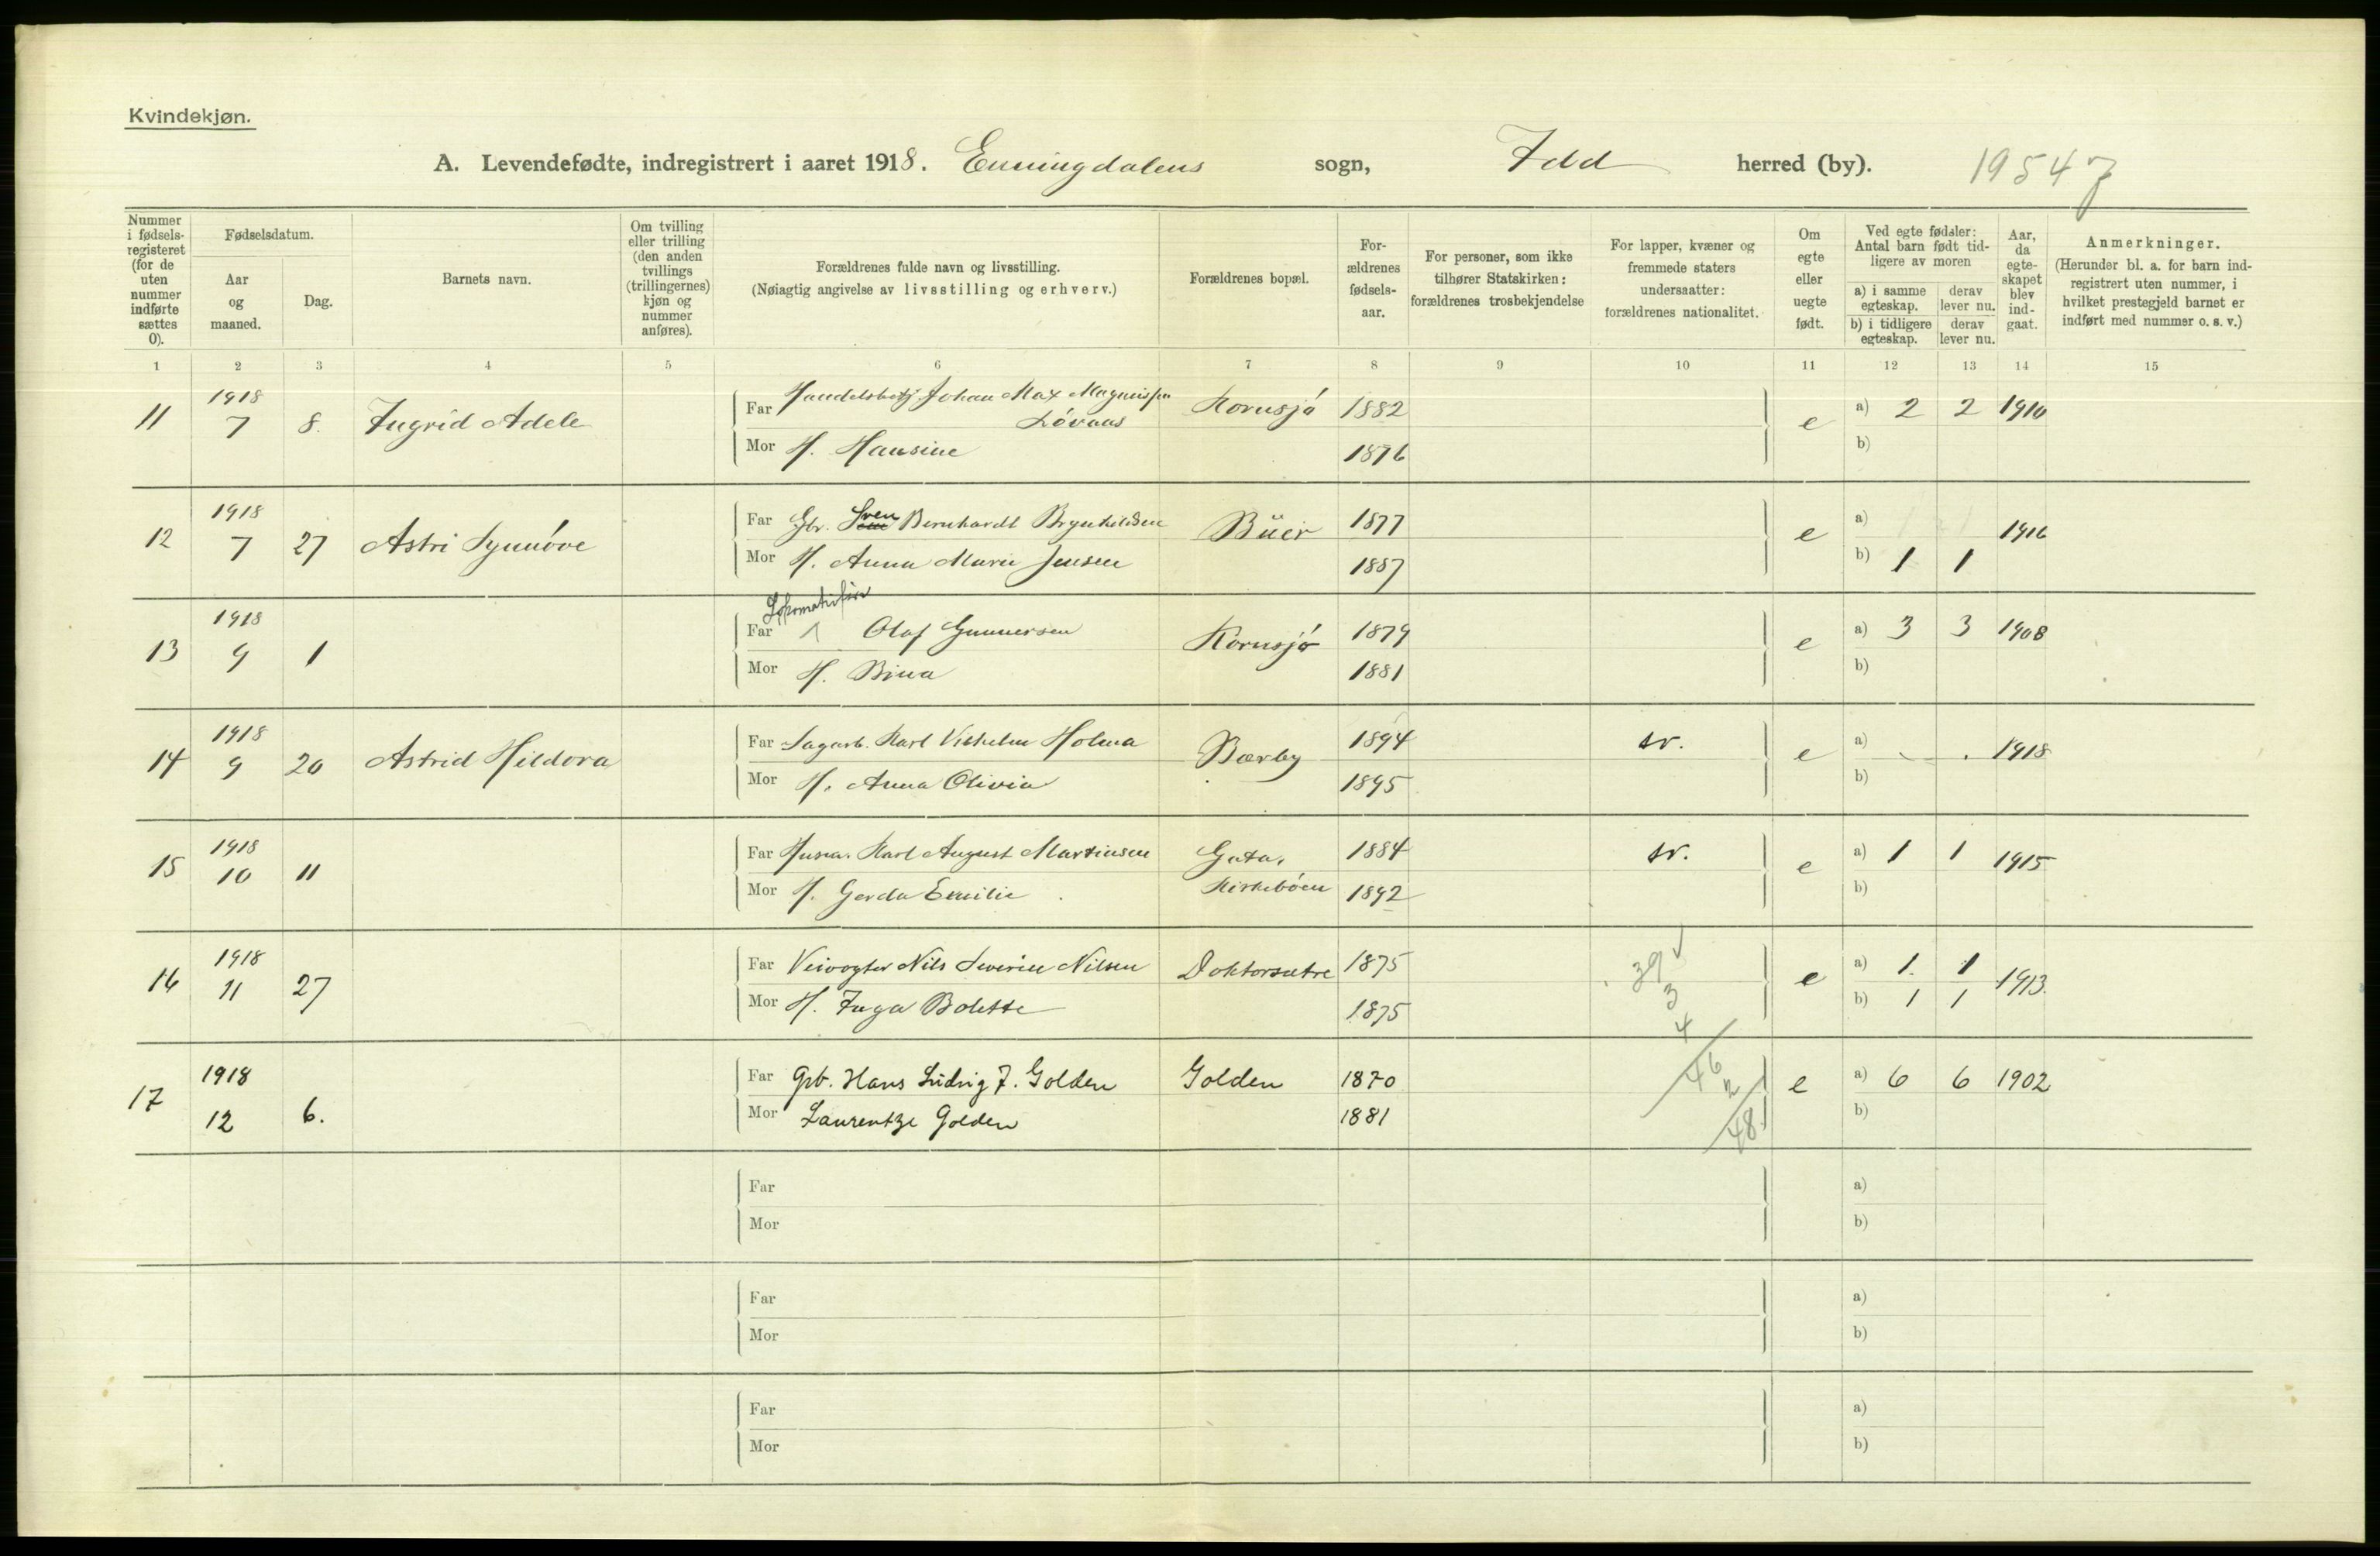 Kvindekjøn.
A. Levendefødte, indregistrert i aaret 1918. Enningdalens sogn, Idd herred (by). 19547
Nummer i fødsels-registeret (for de uten nummer indførte sættes 0).
Fødselsdatum.
Aar og maaned.
Dag.
Barnets navn.
Om tvilling eller trilling (den anden tvillings (trillingernes) kjøn og nummer anføres).
Forældrenes fulde navn og livsstilling.
(Nøiagtig angivelse av livsstilling og erhverv.)
Forældrenes bopæl.
For-ældrenes fødsels-aar.
For personer, som ikke tilhører Statskirken: forældrenes trosbekjendelse
For lapper, kvæner og fremmede staters undersaatter: forældrenes nationalitet.
Om egte eller uegte født.
Ved egte fødsler: Antal barn født tid-ligere av moren
a) i samme egteskap. derav lever nu.
b) i tidligere egteskap. derav lever nu.
Aar, da egte-skapet blev ind-gaat.
Anmerkninger.
(Herunder bl. a. for barn ind-registrert uten nummer, i hvilket prestegjeld barnet er indført med nummer o. s. v.)
1 2 3 4 5 6 7 8 9 10 11 12 13 14 15
11 1918 7 8. Ingrid Adele Far Handelsbetj Johan Max Magnussen Løvaas Kornsjø 1882 e a) 2 2 1910
Mor H. Hansine 1876 b)
12 1918 7 27 Astri Synnøve Far Gbr. Sven Bernhardt Brynhildsen Büer 1877 e a) 1916
Mor H. Anna Marie Jensen 1887 b) 1 1
13 1918 9 1 Far Olaf Gunnersen Kornsjø 1879 e a) 3 3 1908
Mor H. Bina 1881 b)
14 1918 9 20 Astrid Hildora Far Sagarb. Karl Vilhelm Holma Bærby 1894 sv. e a) 1918
Mor H. Anna Olivia 1895 b)
15 1918 10 11 Far Husm. Karl August Martinsen Gata, 1884 sv. e a) 1 1 1915
Mor H. Gerda Emilie Kirkebøen 1892 b)
16 1918 11 27 Far Veivogter Nils Severin Nilsen Doktorsætre 1875 39 e a) 1. 1 1913.
Mor H. Inga Bolette 1875 3 b) 1 1
4
17 1918 12 6. Far Grb. Hans Ludvig J. Golden Golden 1870 46 e a) 6 6 1902
Mor Laurentze Golden 1881 2 b)
48
Far a)
Mor b)
Far a)
Mor b)
Far a)
Mor b)